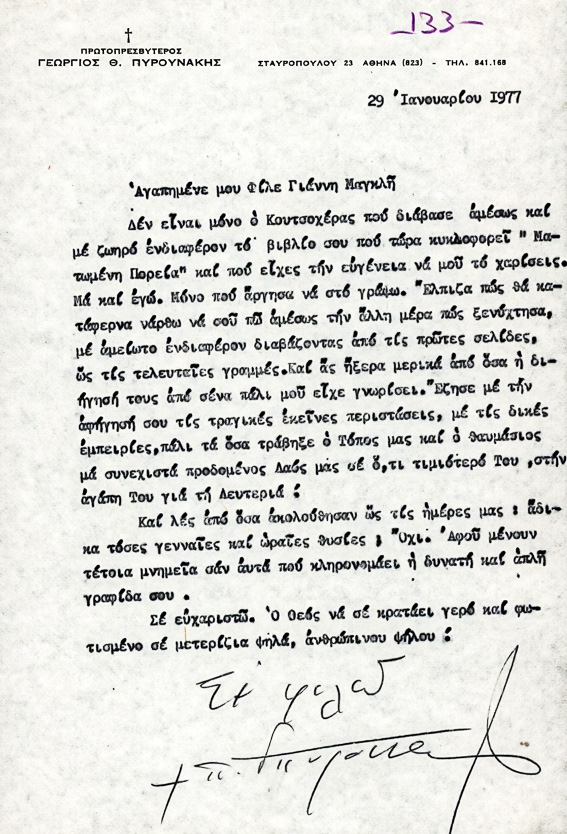 -133-
ΠΡΩΤΟΠΡΕΣΒΥΤΕΡΟΣ
ΓΕΩΡΓΙΟΣ Θ. ΠΥΡΟΥΝΑΚΗΣ
ΣΤΑΥΡΟΠΟΥΛΟΥ 23 ΑΘΗΝΑ (823) - ΤΗΛ. 841.168
29 Ἰανουαρίου 1977
Ἀγαπημένε μου Φίλε Γιάννη Μαγκλῆ
Δέν εἶναι μόνο ὁ Κουτσοχέρας πού διάβασε ἀμέσως καί
μέ ζωηρό ἐνδιαφέρον τό βιβλίο σου πού τώρα κυκλοφορεῖ " Μα-
τωμένη Πορεία" καί πού εἶχες τήν εὐγένεια νά μοῦ τό χαρίσεις.
Μά καί ἐγώ. Μόνο πού ἄργησα νά στό γράψω. Ἔλπιζα πώς θά κα-
τάφερνα νάρθω νά σοῦ πῶ ἀμέσως τήν ἄλλη μέρα πώς ξενύχτησα,
μέ ἀμείωτο ἐνδιαφέρον διαβάζοντας ἀπό τίς πρῶτες σελίδες,
ὥς τίς τελευταῖες γραμμές.Καί ἄς ἤξερα μερικά ἀπό ὅσα ἡ δι-
ήγησή τους ἀπό σένα πάλι μοῦ εἶχε γνωρίσει.Ἔζησε μέ τήν
ἀφήγησή σου τίς τραγικές ἐκεῖνες περιστάσεις, μέ τίς δικές
ἐμπειρίες,πάλι τά ὅσα τράβηξε ὁ Τόπος μας καί ὁ θαυμάσιος
μά συνεχιστά προδομένος Λαός μας σέ ὅ,τι τιμιότερό Του ,στήν
ἀγάπη Του γιά τή Λευτεριά !
Καί λές ἀπό ὅσα ἀκολούθησαν ὥς τίς ἡμέρες μας : ἄδι-
κα τόσες γενναῖες καί ὡραῖες θυσίες ; Ὄχι. Ἀφοῦ μένουν
τέτοια μνημεῖα σάν αὐτά πού κληρονομάει ἡ δυνατή καί ἁπλή
γραφίδα σου .
Σέ εὐχαριστῶ. Ὁ Θεός νά σέ κρατάει γερό καί φω-
τισμένο σέ μετερίζια ψηλά, ἀνθρώπινου ψήλου !
Σέ φιλῶ